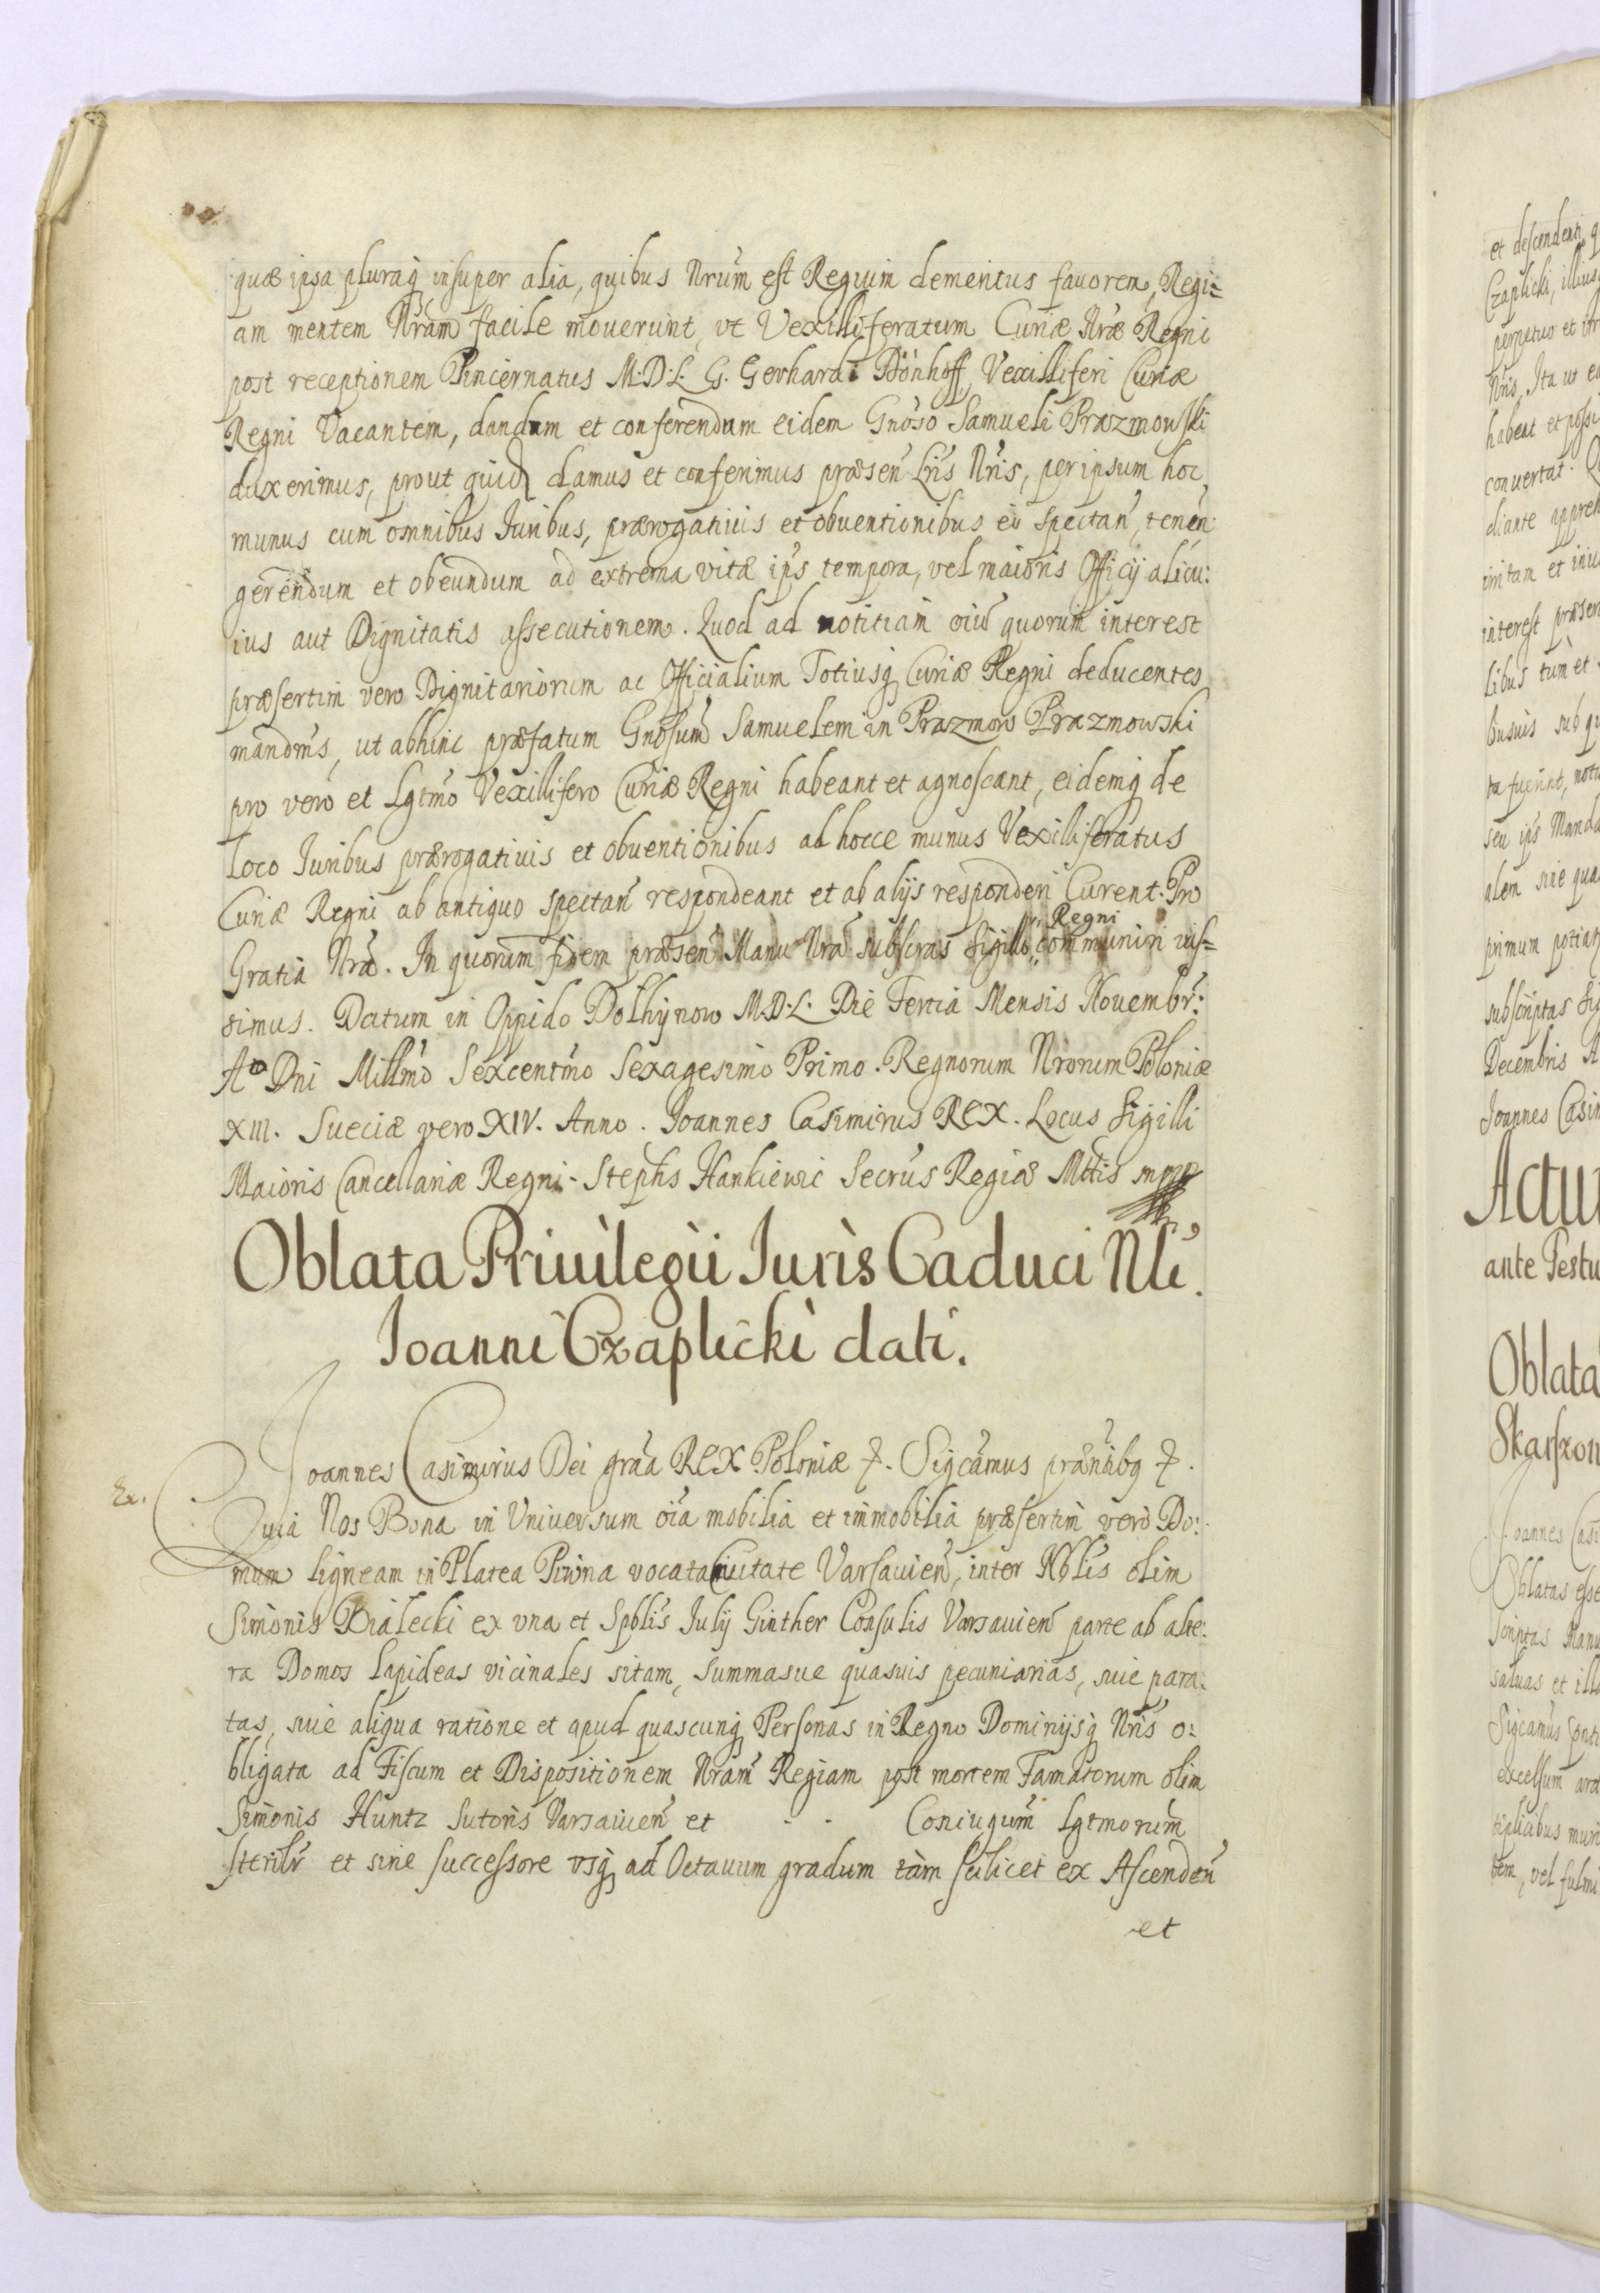 quæ ipsa pluraq insuper alia, quibus Nrum est Regium dementus fauorem, Regi=
am mentem Nram facile mouerunt, vt Vexilliferatum Curiæ Nræ Regni
post receptionem Pincernatus M.D.L. G. Gerhardi Dönhoff Vexilliferi Curiæ
Regni Vacantem, dandum et conferendum eidem Gnoso Samueli Prazmowski
duxerimus, prout quid damus et conferimus præsen Lris Nris, per ipsum hoc
munus cum omnibus Iuribus, prærogatiuis et obuentionibus eo spectan, tenen:
gerendum et obeundum ad extrema vitæ ips tempora, vel maioris Officij alicu:
ius aut Dignitatis assecutionem. Quod ad notitiam oiu quorum interest
præsertim vero Dignitariorum ac Officialium Totiusq Curiæ Regni deducentes
mandms, ut abhinc præfatum Gnosum Samuelem in Prazmow Prazmowski
pro vero et Lgtmo Vexillifero Curiæ Regni habeant et agnoscant, eidemq de
loco Iuribus prærogatiuis et obuentionibus ad hocce munus Vexilliferatus
Curiæ Regni ab antiquo spectan respondeant et ab alijs responderi Curent. Pro
Gratia Nra. In quorum fidem præsen Manu Nra subscras Sigillo Regni communiri ius=
simus. Datum in Oppido Dolhijnow M.D.L. Die Tertia Mensis Nouembr:
Ao Dni Millmo Sexcentmo Sexagesimo Primo. Regnorum Nrorum Poloniæ
XIII. Sueciæ vero XIV. Anno. Joannes Casimirus REX. Locus Sigilli
Maioris Cancellariæ Regni. Stephs Hankiewic Secrus Regiæ Mttis mpp
Oblata Priuilegii Iuris Caduci Nli.
Ioanni Czaplicki dati.
Joannes Casimirus Dei gra REX Poloniæ &. Sigcamus prænibq &.
Ex. Quia Nos Bona in Vniuersum oia mobilia et immobilia præsertim vero Do:
mum ligneam in Platea Piwna vocata Ciuitate Varsauien, inter Nblis olim
Simonis Bialecki ex vna et Spblis Iulij Ginther Consulis Varsauien parte ab alte:
ra Domos lapideas vicinales sitam, summasue quasuis pecuniarias, siue para:
tas, siue aliqua ratione et apud quascunq Personas in Regno Dominijsq Nris o:
bligata ad Fiscum et Dispositionem Nram Regiam post mortem Famatorum olim
Simonis Huntz Sutoris Varsauien et - - Coniugum Lgtmorum
sterilr et sine successore vsq ad Octauum gradum tam scilicet ex Ascenden
et
et descenden
Czaplicki, illius
perpetuo et
Nris, Ita ut
habeat et possi
conuertat.
diante appreh
irritam et
interest præsen
libus tum et
busuis sub
ta fuerint,
seu ips Manda
alem siue qua
primum
subscriptas Sig
Decembris A
Joannes Casim
Actu
ante Festu
Oblata
Skarszon
Joannes Casi
Oblatas esse
scriptas Manu
saluas et illa
Sigcamus
excelsum
tiplicibus muni
tem, vel fulmi